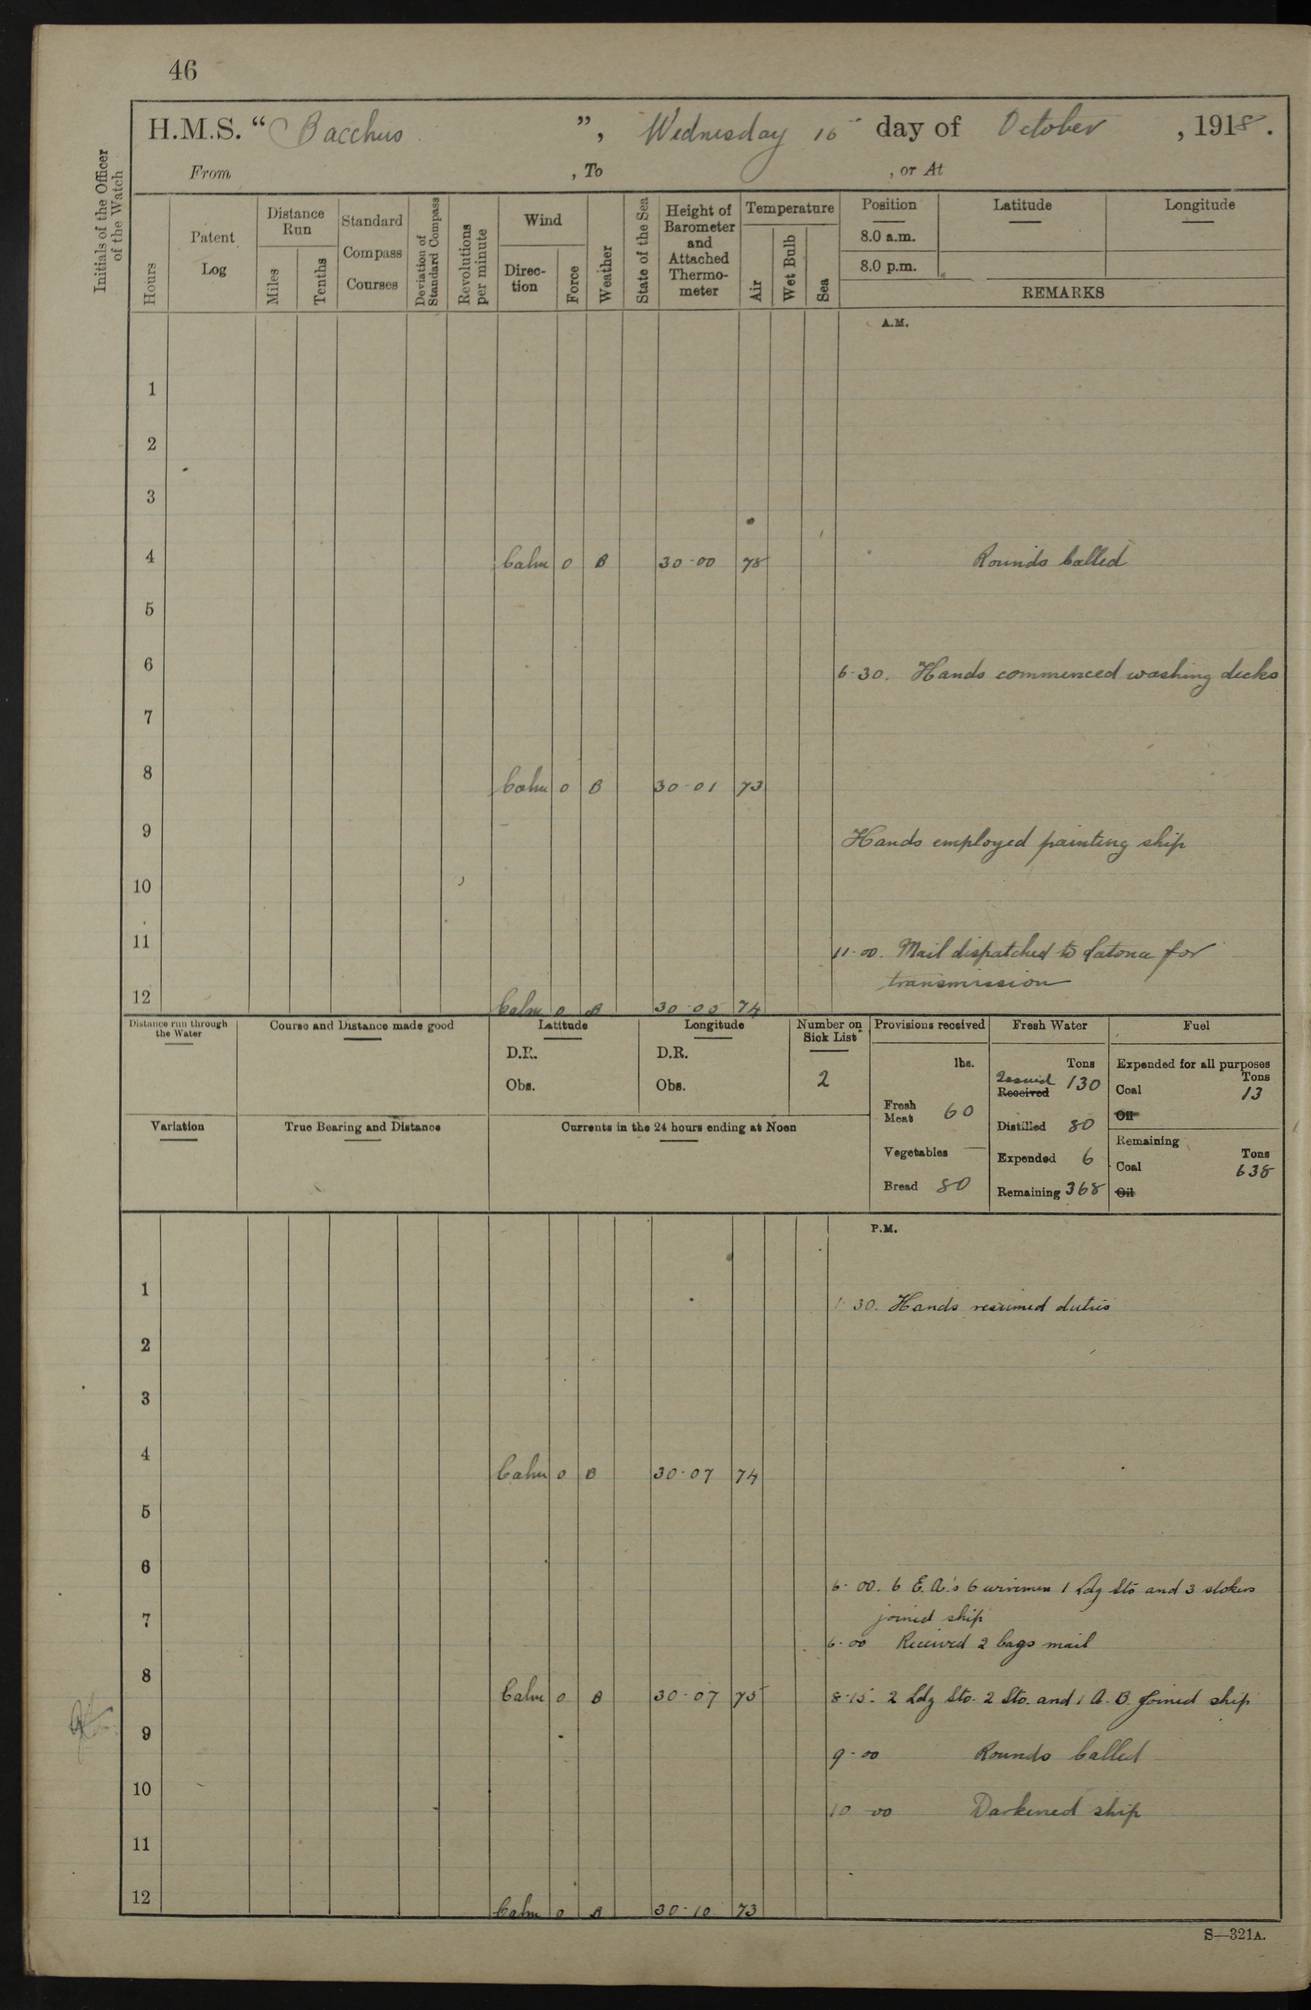 46
H.M.S. “ Bacchus ”, Wednesday 16 day of October , 1918.
From , To , or At
Initials of the Officer of the Watch
Hours
Patent Log
Distance Run
Miles
Tenths
Standard Compass Courses
Deviation of Standard Compass
Revolutions per minute
Wind
Direction
Force
Weather
State of the Sea
Height of Barometer and Attached Thermometer
Temperature
Air
Wet Bulb
Sea
Position Latitude Longitude
8.0 a.m.
8.0 p.m.
REMARKS
A.M.
1
2
3
4 Calm 0 B 30·00 75 Rounds Called
5
6 6·30. Hands commenced washing decks
7
8 Calm 0 B 30·01 73
9 Hands employed painting ship
10
11 11·00. Mail dispatched to Latona for
transmission
12 Calm 0 B 30·05 74
Distance run through the Water
Course and Distance made good
Latitude
D.R.
Obs.
Longitude
D.R.
Obs.
Number on Sick List
2
Provisions received
lbs.
Fresh Meat 60
Vegetables —
Bread 80
Fresh Water
Tons
Issued
Received 130
Distilled 80
Expended 6
Remaining 368
Fuel
Expended for all purposes
Tons
Coal 13
Oil
Remaining
Tons
Coal 638
Oil
Variation
True Bearing and Distance
Currents in the 24 hours ending at Noon
P.M.
1 1·30. Hands resumed duties
2
3
4 Calm 0 B 30·07 74
5
6 6·00. 6 E.A.'s 6 wiremen 1 Ldg Sto and 3 stokers
7 joined ship
6·00 Received 2 bags mail
8 Calm 0 B 30·07 75 8·15. 2 Ldg Sto. 2 Sto. and 1 A.B. joined ship
9 9·00 Rounds Called
10 10·00 Darkened ship
11
12 Calm 0 B 30·10 73
S—321A.